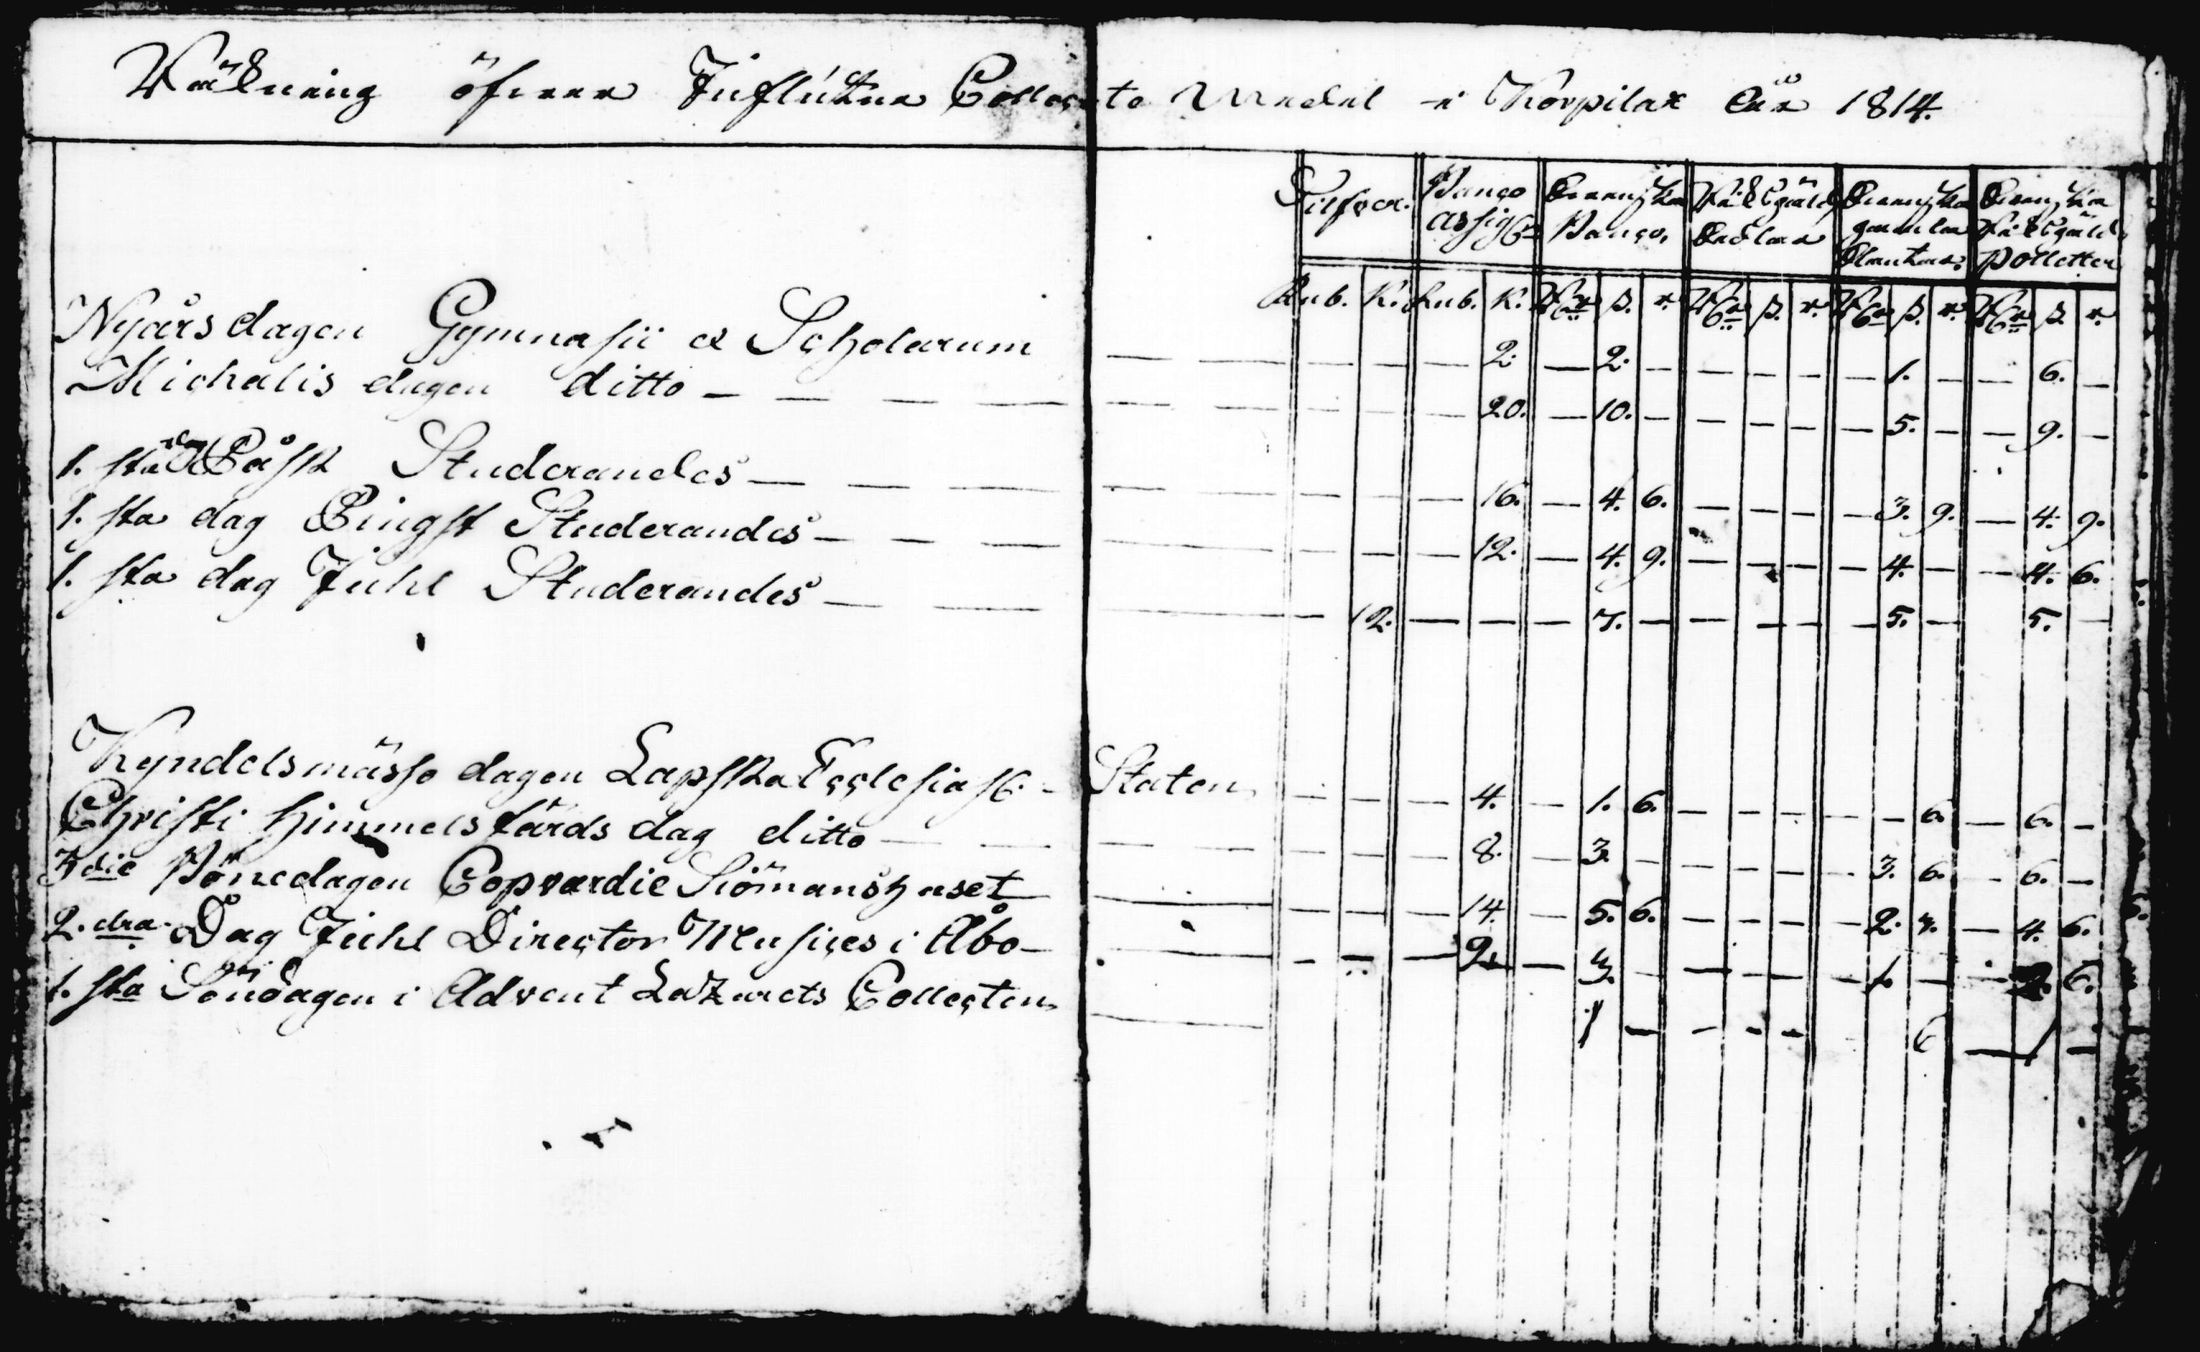 Räkning öfver Influtne Collecte Medel i Korpilax År 1814.
Silfver. Banco assig. Svenska Banco. Riksgäld Sedlar Svenska gamla Svenska Riksgäld Polletter
Rub. K. Rub. K. Rdr ß. r. Rdr ß. r. Rdr ß. r. Rdr ß. r.
Nyårsdagen Gymnasii et Scholarum — — — — 2. — 2. — — — — — 1. — — 6. —
Michaelis dagen ditto — — — — 20. — 10. — — — — — 5. — — 9. —
1. sta dag Påsk Studerandes — — — — 16. — 4. 6. — — — — 3. 9. — 4. 9.
1. sta dag Pingst Studerandes — — — — 12. — 4. 9. — — — — 4. — — 4. 6.
1. sta dag Juhl Studerandes — — 12. — — — 7. — — — — — 5. — 5. —
Kyndelsmässo dagen Lapska Ecclesiast. Staten — — — 4. — 1. 6. — — — — — 6. — 6. —
Christi Himmelsfärds dag ditto — — — — 8. — 3. — — — — — 3. 6. — 6. —
3die Bönedagen Copvardie Siömanshuset — — — 14. — 5. 6. — — — — 2. — 4. 6.
2. dra Dag Juhl Director Musices i Åbo — — — — 9. — 3. — — — — — 1. — — 2. 6.
1. sta Söndagen i Advent Lazarets Collecten — 1 — — — — 6 — 1 —